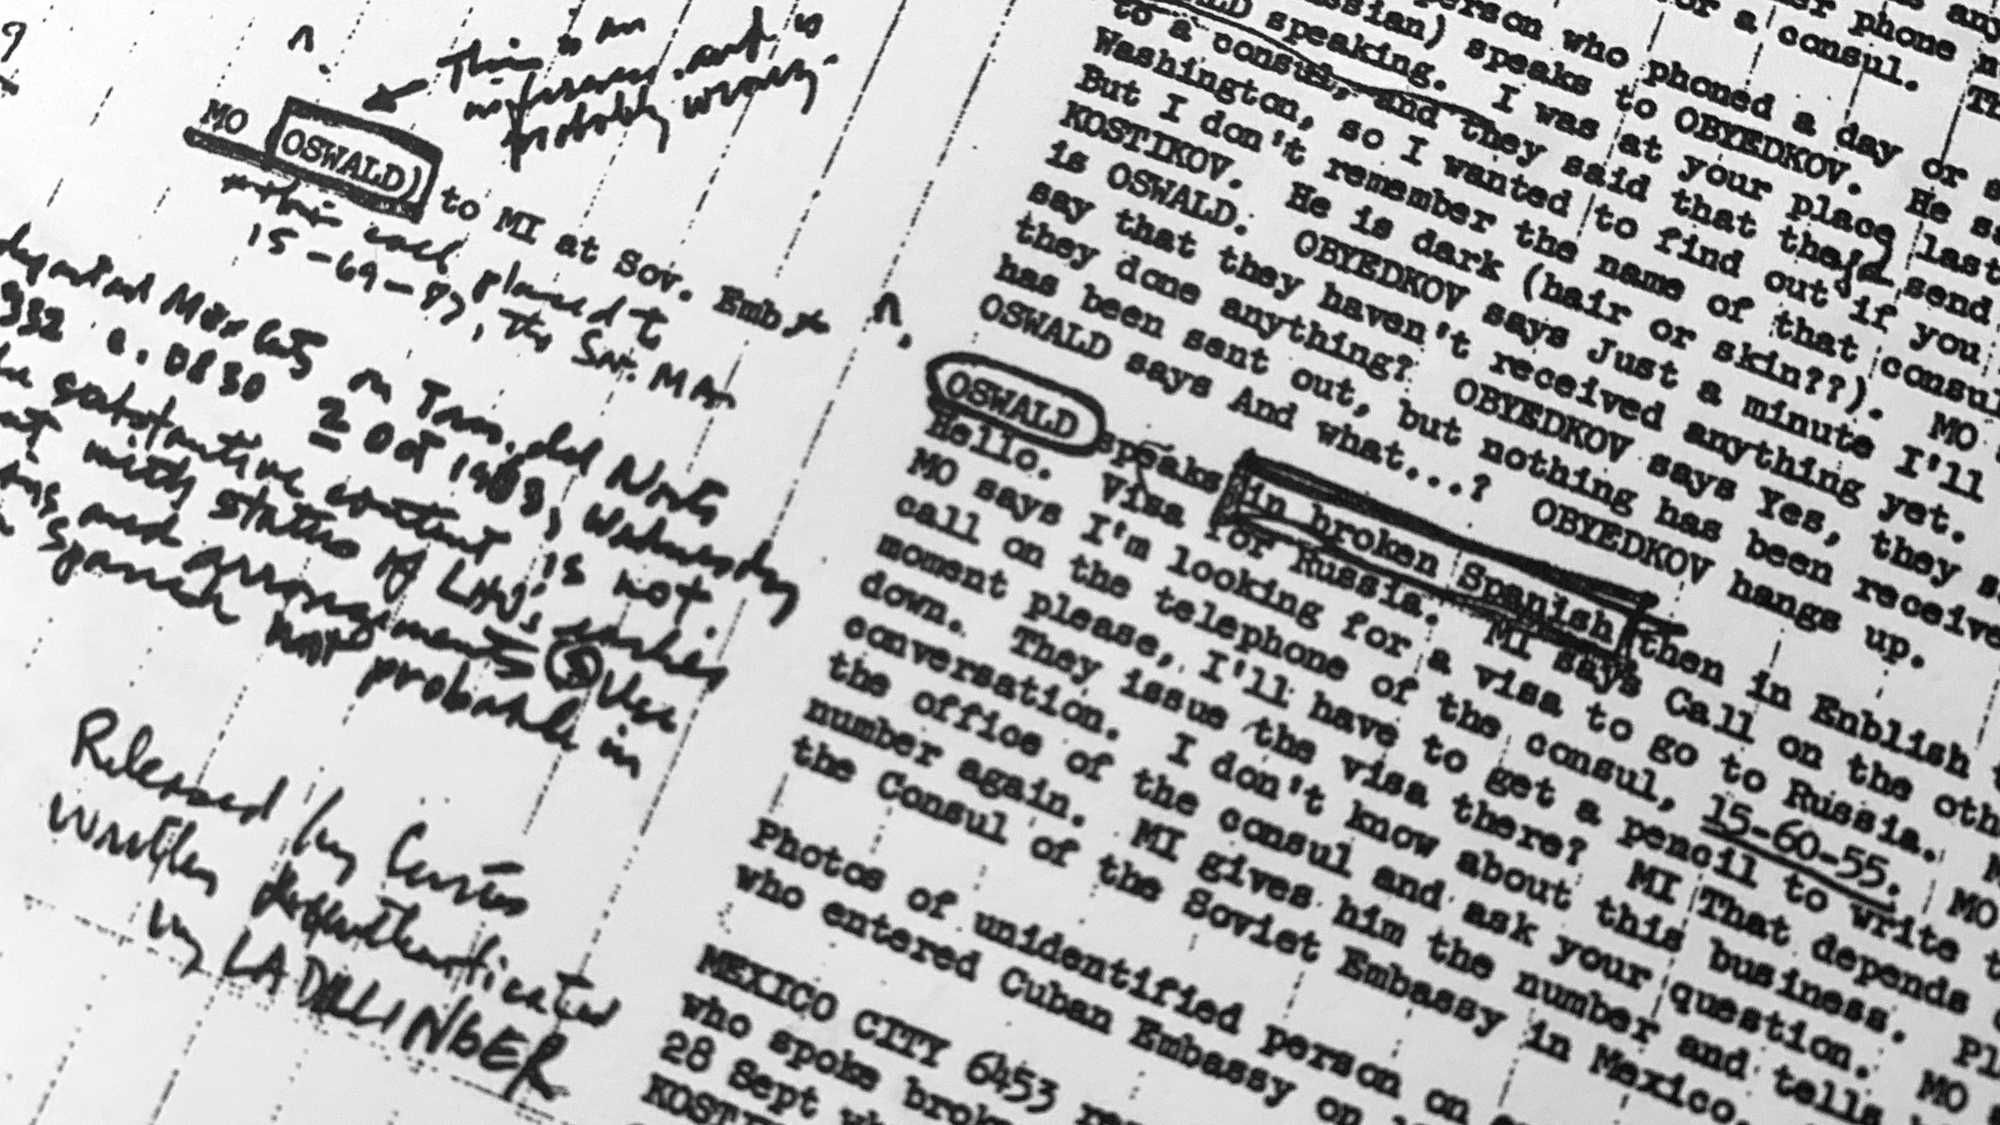 This is an
inference and is
probably wrong.
MO OSWALD) to MI at Sov. Emb
this call placed to
15-69-87, the Sov. MA.
2 Oct 1963, Wednesday
substantive content is not.
with status of LHO's
arrangements Use
Spanish not probable in
Released by
written
by LA DILLINGER
any
phone
or a consul. Th
person who phoned a day or s
ssian) speaks to OBYEDKOV. He sa
LD speaking. I was at your place last
to a consul, and they said that they'd send
Washington, so I wanted to find out if you
But I don't remember the name of that consul
KOSTIKOV. He is dark (hair or skin??). MO s
is OSWALD. OBYEDKOV says Just a minute I'll
say that they haven't received anything yet.
they done anything? OBYEDKOV says Yes, they s
has been sent out, but nothing has been receive
OSWALD says And what...? OBYEDKOV hangs up.
OSWALD speaks in broken Spanish then in Enblish t
Hello. Visa for Russia. MI says Call on the oth
MO says I'm looking for a visa to go to Russia. M
call on the telephone of the consul, 15-60-55. MO
moment please, I'll have to get a pencil to write t
down. They issue the visa there? MI That depends o
conversation. I don't know about this business. Pl
the office of the consul and ask your question. MO
number again. MI gives him the number and tells h
the Consul of the Soviet Embassy in Mexico.
Photos of unidentified person on
who entered Cuban Embassy on
MEXICO CITY 6453 re
who spoke brok
28 Sept
KOSTI